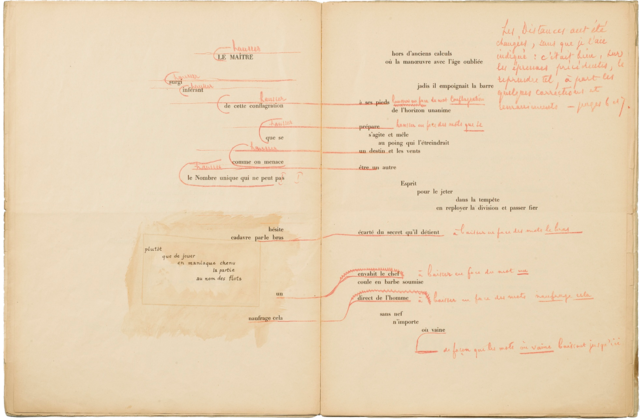 hausser
LE MAÎTRE
surgi
inférant
hausser
de cette conflagration
hausser
que se
hausser
comme on menace
le Nombre unique qui ne peut pas
hésite
cadavre par le bras
plutôt
que de jouer
en maniaque chenu
la partie
au nom des flots
un
naufrage cela
hors d'anciens calculs
où la manœuvre avec l'âge oubliée
jadis il empoignait la barre
à ses pieds hausser en face du mot Conflagration
de l'horizon unanime
prépare hausser en face des mots que se
s'agite et mêle
au poing qui l'étreindrait
un destin et les vents
être un autre
Esprit
pour le jeter
dans la tempête
en reployer la division et passer fier
écarté du secret qu'il détient à hausser en face des mots le bras
envahit le chef à hausser en face du mot un
coule en barbe soumise
direct de l'homme à hausser en face des mots naufrage cela
sans nef
n'importe
où vaine
de façon que les mots où vaine
Les Distances ont été
changées, sans que je l'aie
indiqué : c'était bien, sur
les épreuves précédentes, le
reprendre tel, à part les
quelques corrections et